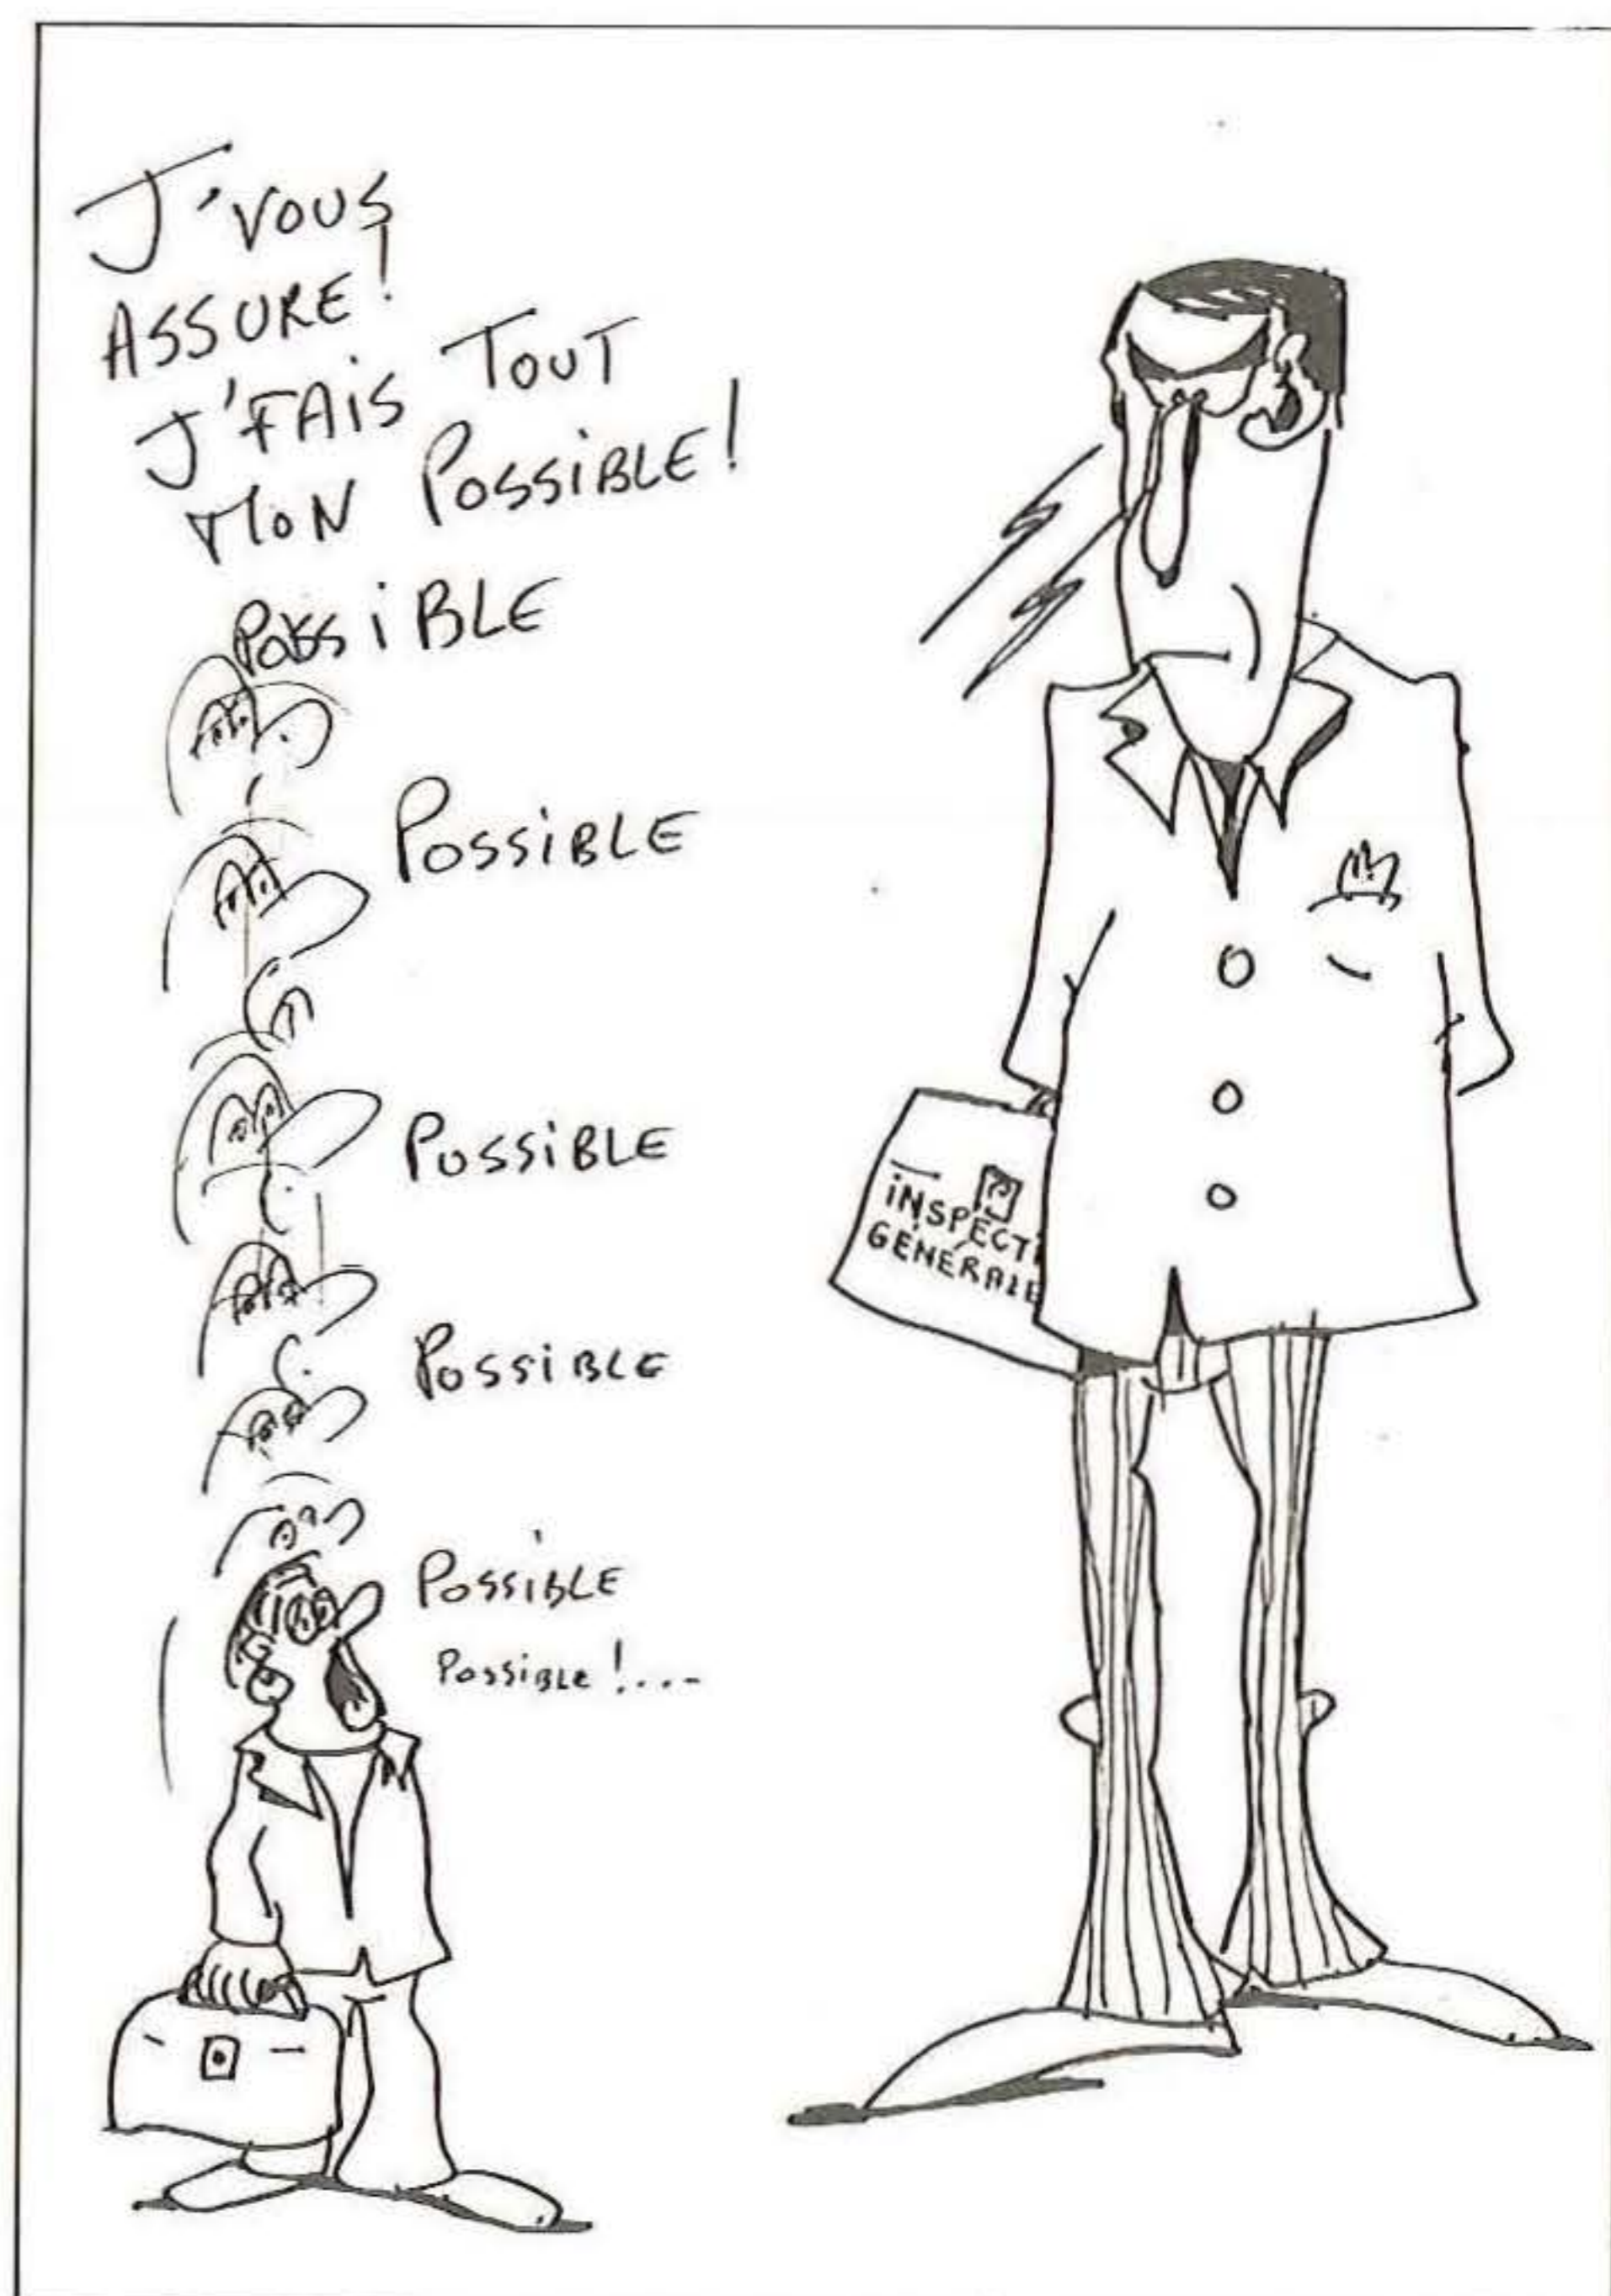 J'VOUS
ASSURE!
J'FAIS TOUT
MON POSSIBLE!
POSSIBLE
POSSIBLE
POSSIBLE
POSSIBLE
POSSIBLE
POSSIBLE!...
INSPECTI
GÉNÉRALE